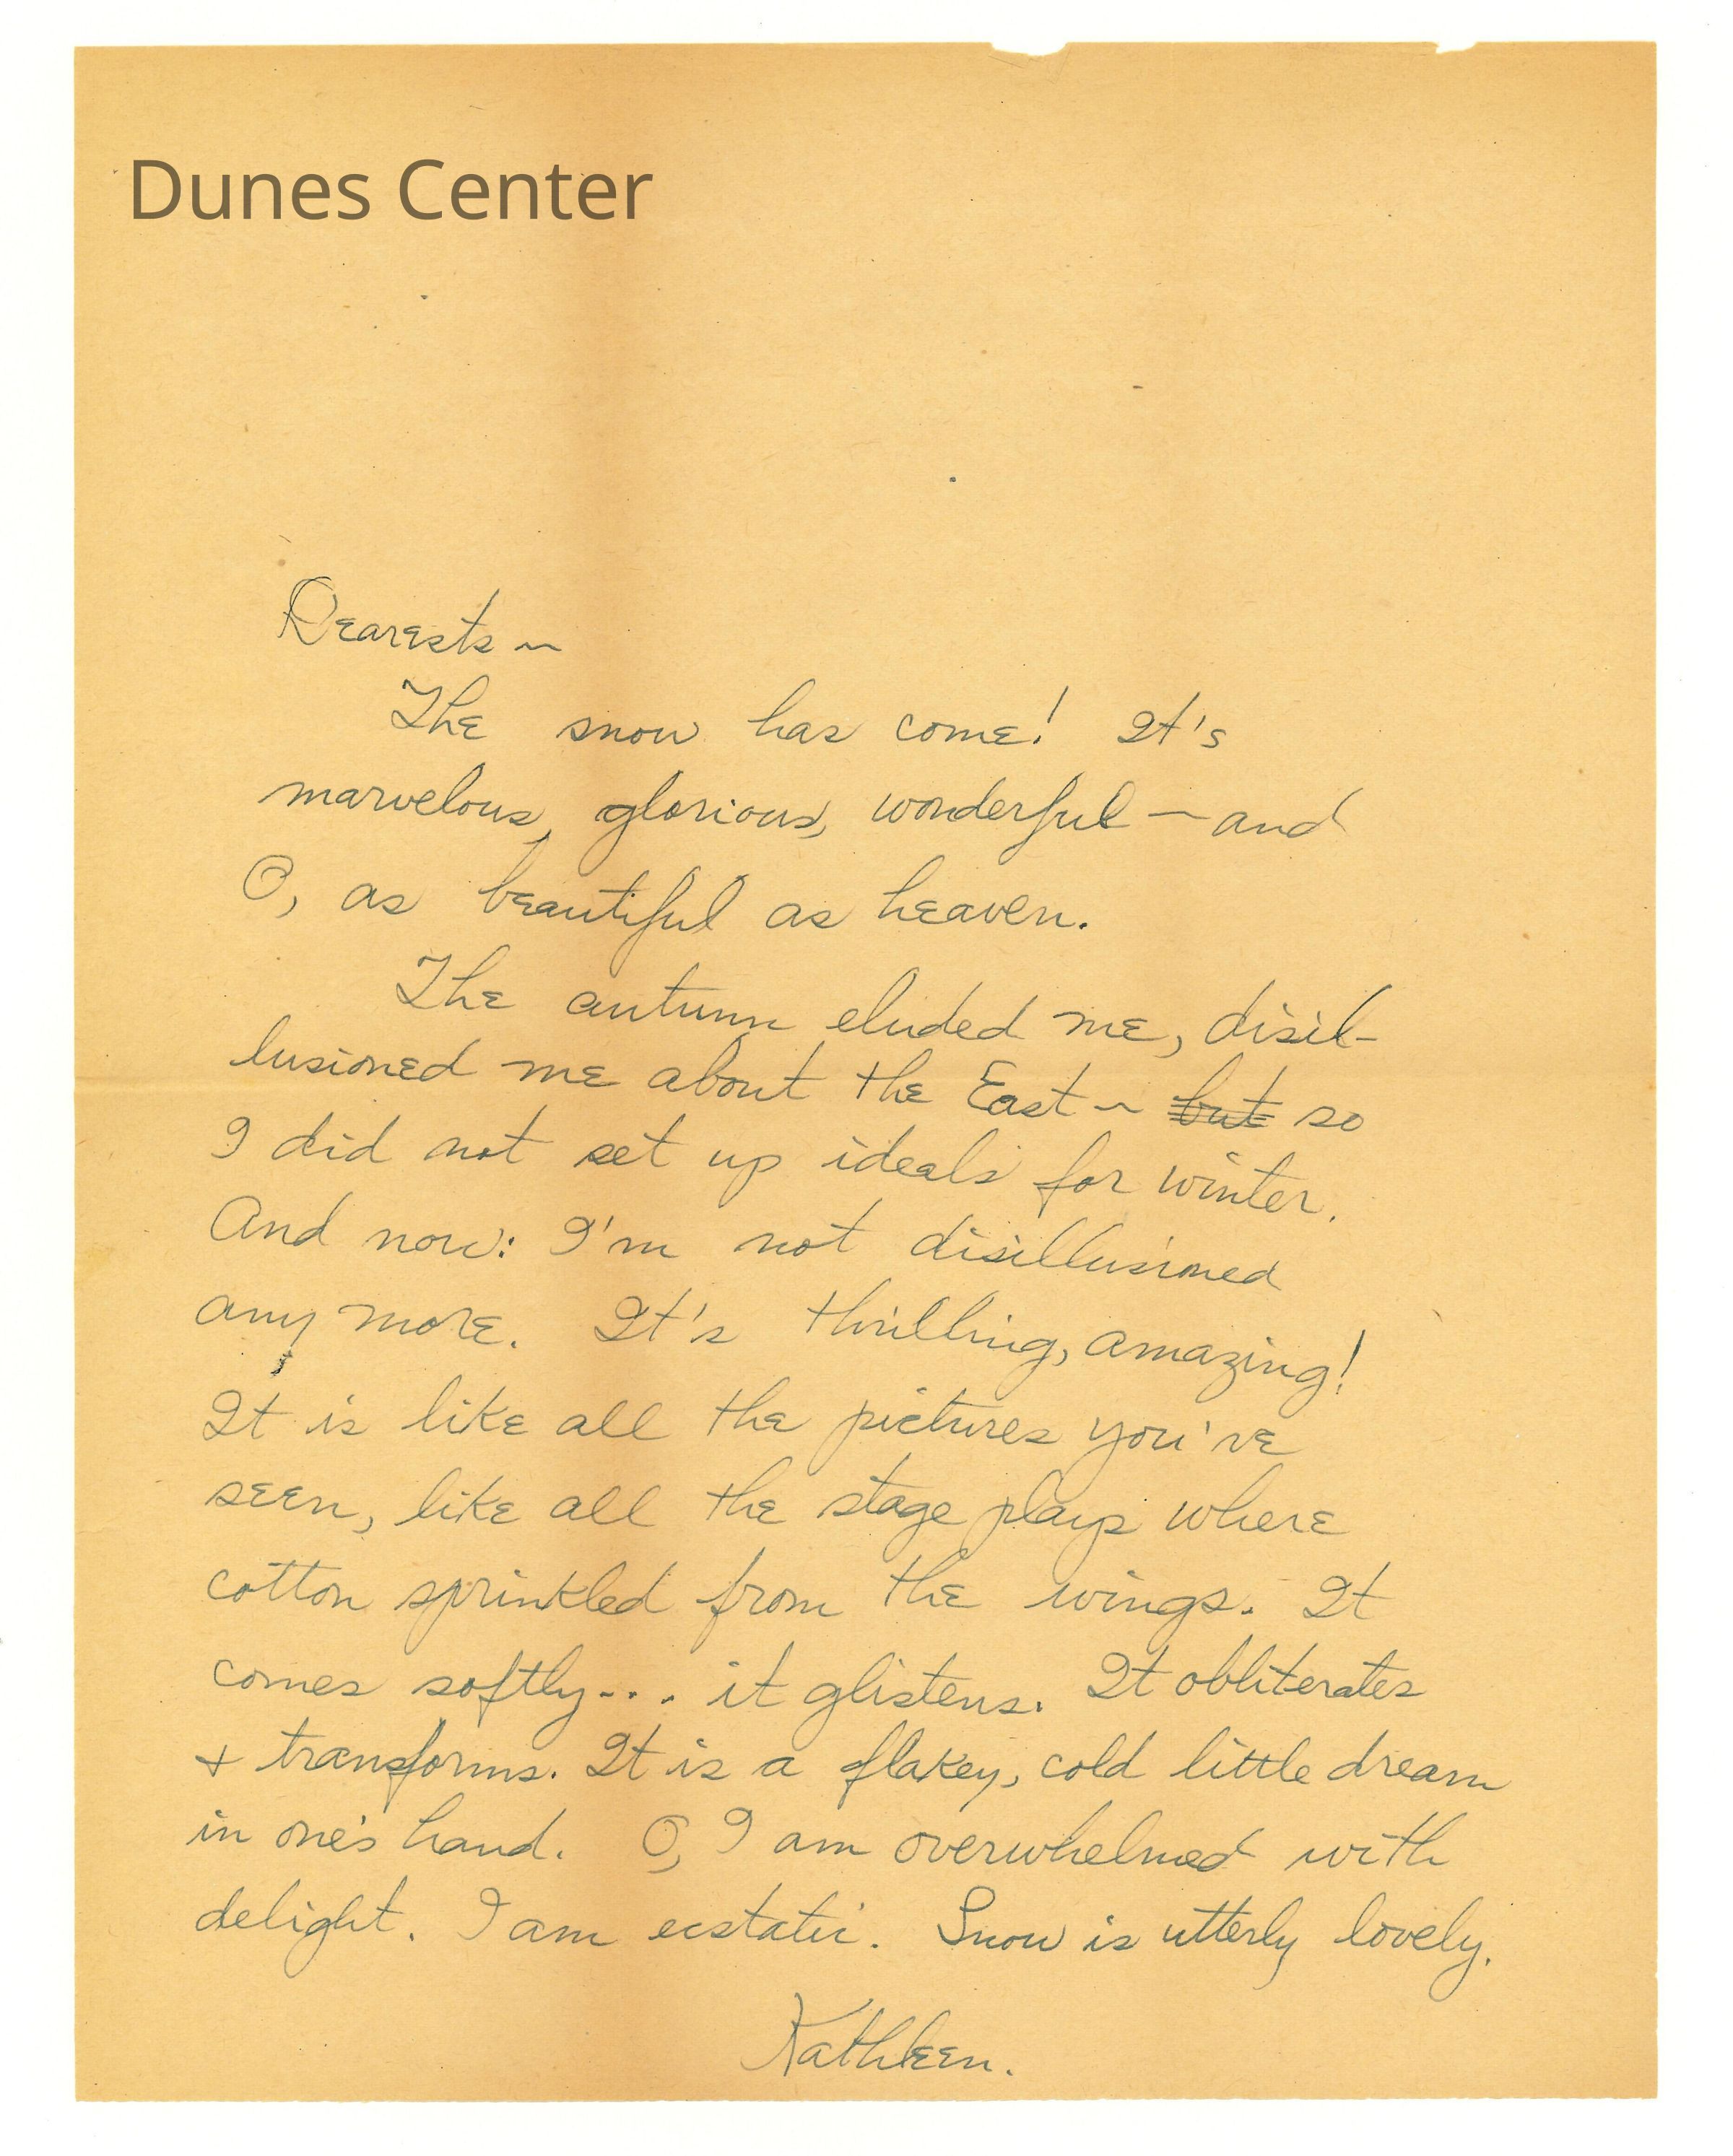 Dunes Center
Dearests ~
The snow has come! It's
marvelous, glorious, wonderful — and
O, as beautiful as heaven.
The autumn eluded me, disil-
lusioned me about the East ~ but so
I did not set up ideals for winter.
And now: I'm not disillusioned
any more. It's thrilling, amazing!
It is like all the pictures you've
seen, like all the stage plays where
cotton sprinkled from the wings. It
comes softly... it glistens. It obliterates
+ transforms. It is a flakey, cold little dream
in one's hand. O, I am overwhelmed with
delight. I am ecstatic. Snow is utterly lovely.
Kathleen.